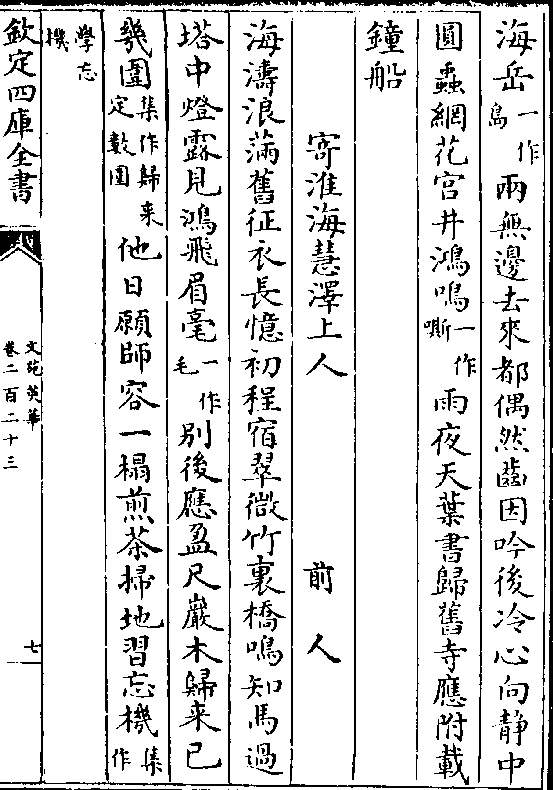 海岳一作島兩無邊去來都偶然齒因吟後冷心向静中
圓蟲網花宫井鴻鳴一作嘶雨夜天葉書歸舊寺應附載
鐘船
寄淮海慧澤上人　前人
海濤浪滿舊征衣長憶初程宿翠微竹裏橋鳴知馬過
塔中燈露見鴻飛眉毫一作毛别後應盈尺巖木歸来已
幾圍集作歸来定數圍他日願師容一榻煎茶掃地習忘機集作
學忘機
欽定四庫全書
文苑英華
卷二百二十三
七